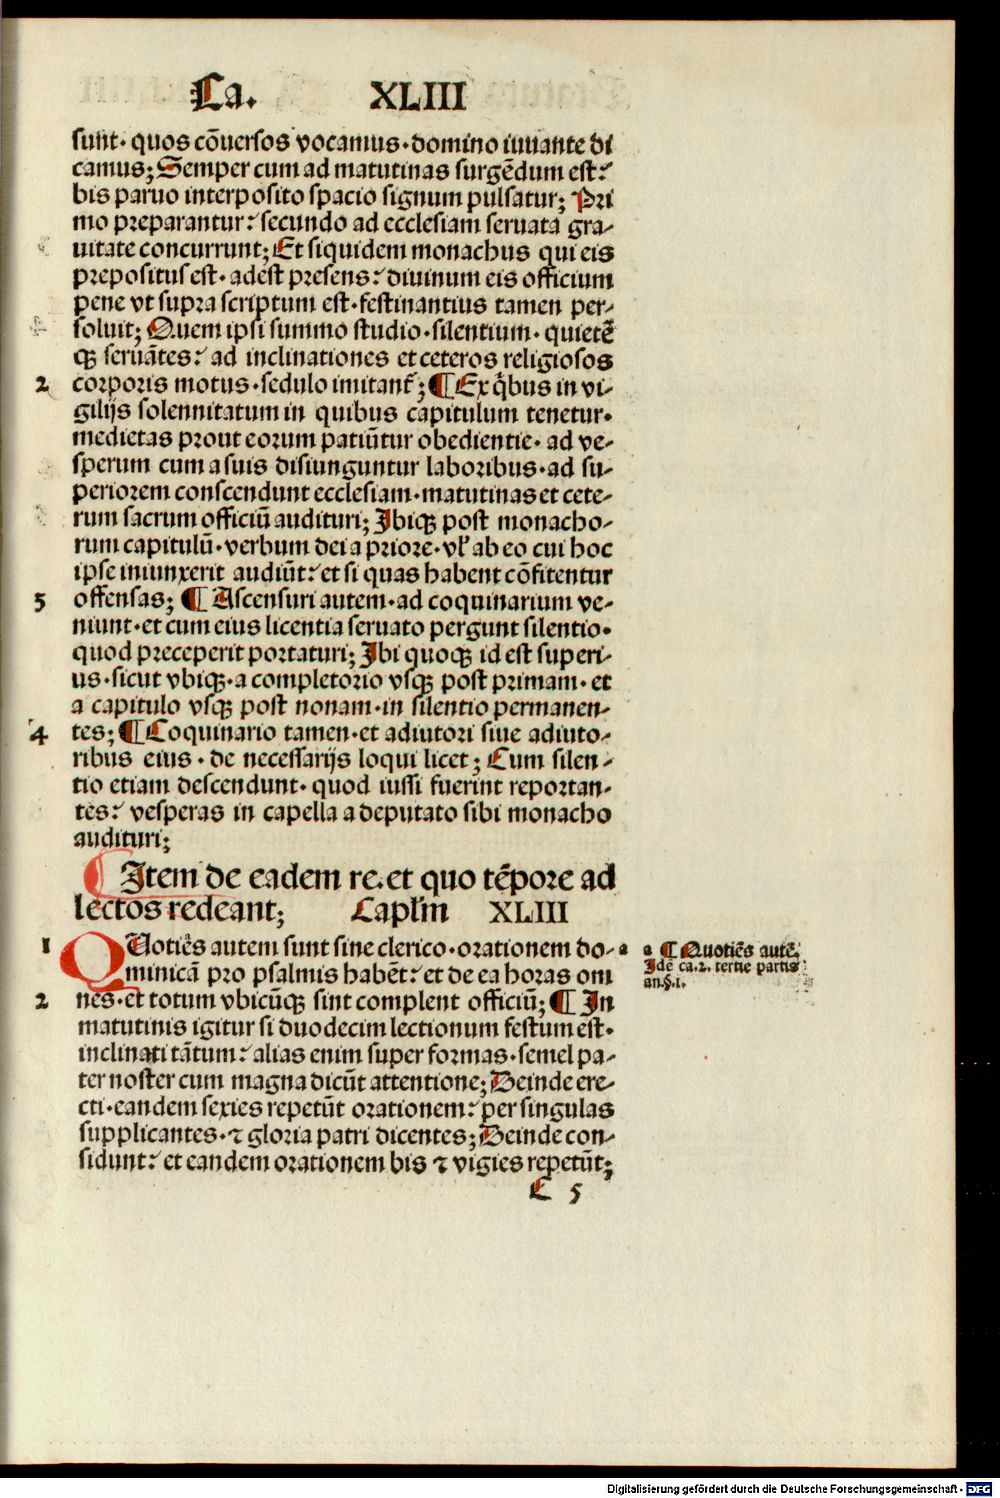 Ca. XLIII
sunt· quos cōuersos vocamus·domino iuuante di
camus; Semper cum ad matutinas surgēdum est:
bis paruo interposito spacio signum pulsatur; Pri
mo preparantur: secundo ad ecclesiam seruata gra-
uitate concurrunt; Et siquidem monachus qui eis
prepositus est· adest presens: diuinum eis officium
pene vt supra scriptum est·festinantius tamen per-
soluit; Quem ipsi summo studio·silentium· quietē
qꝫ seruātes: ad inclinationes et ceteros religiosos
2 corporis motus·sedulo imitant᷑; ¶ Ex q̄bus in vi-
gilijs solennitatum in quibus capitulum tenetur·
medietas prout eorum patiūtur obedientie· ad ve-
sperum cum a suis disiunguntur laboribus·ad su-
periorem conscendunt ecclesiam·matutinas et cete-
rum sacrum officiū audituri; Ibiqꝫ post monacho-
rum capitulū·verbum dei a priore·vl̕ ab eo cui hoc
ipse iniunxerit audiūt: et si quas habent cōfitentur
3 offensas; ¶ Ascensuri autem·ad coquinarium ve-
niunt·et cum eius licentia seruato pergunt silentio·
quod preceperit portaturi; Ibi quoqꝫ id est superi-
us·sicut vbiqꝫ·a completorio vsqꝫ post primam· et
a capitulo vsqꝫ post nonam·in silentio permanen-
4 tes; ¶ Coquinario tamen·et adiutori siue adiuto-
ribus eius· de necessarijs loqui licet; Cum silen-
tio etiam descendunt· quod iussi fuerint reportan-
tes: vesperas in capella a deputato sibi monacho
audituri;
¶ Item de eadem re.et quo tēpore ad
lectos redeant; Capl̕m XLIII
1 QUotiēs autem sunt sine clerico·orationem do- a
minicā pro psalmis habēt: et de ea horas om
2 nes·et totum vbicūqꝫ sint complent officiū; ¶ In
matutinis igitur si duodecim lectionum festum est·
inclinati tātum: alias enim super formas·semel pa-
ter noster cum magna dicūt attentione; Deinde ere-
cti·eandem sexies repetūt orationem: per singulas
supplicantes·⁊ gloria patri dicentes; Deinde con-
sidunt: et eandem orationem bis ⁊ vigies repetūt;
C 5
a ¶ Quotiēs autē.
Idē ca.2. tertie partis
an.§.1.
Digitalisierung gefördert durch die Deutsche Forschungsgemeinschaft - DFG